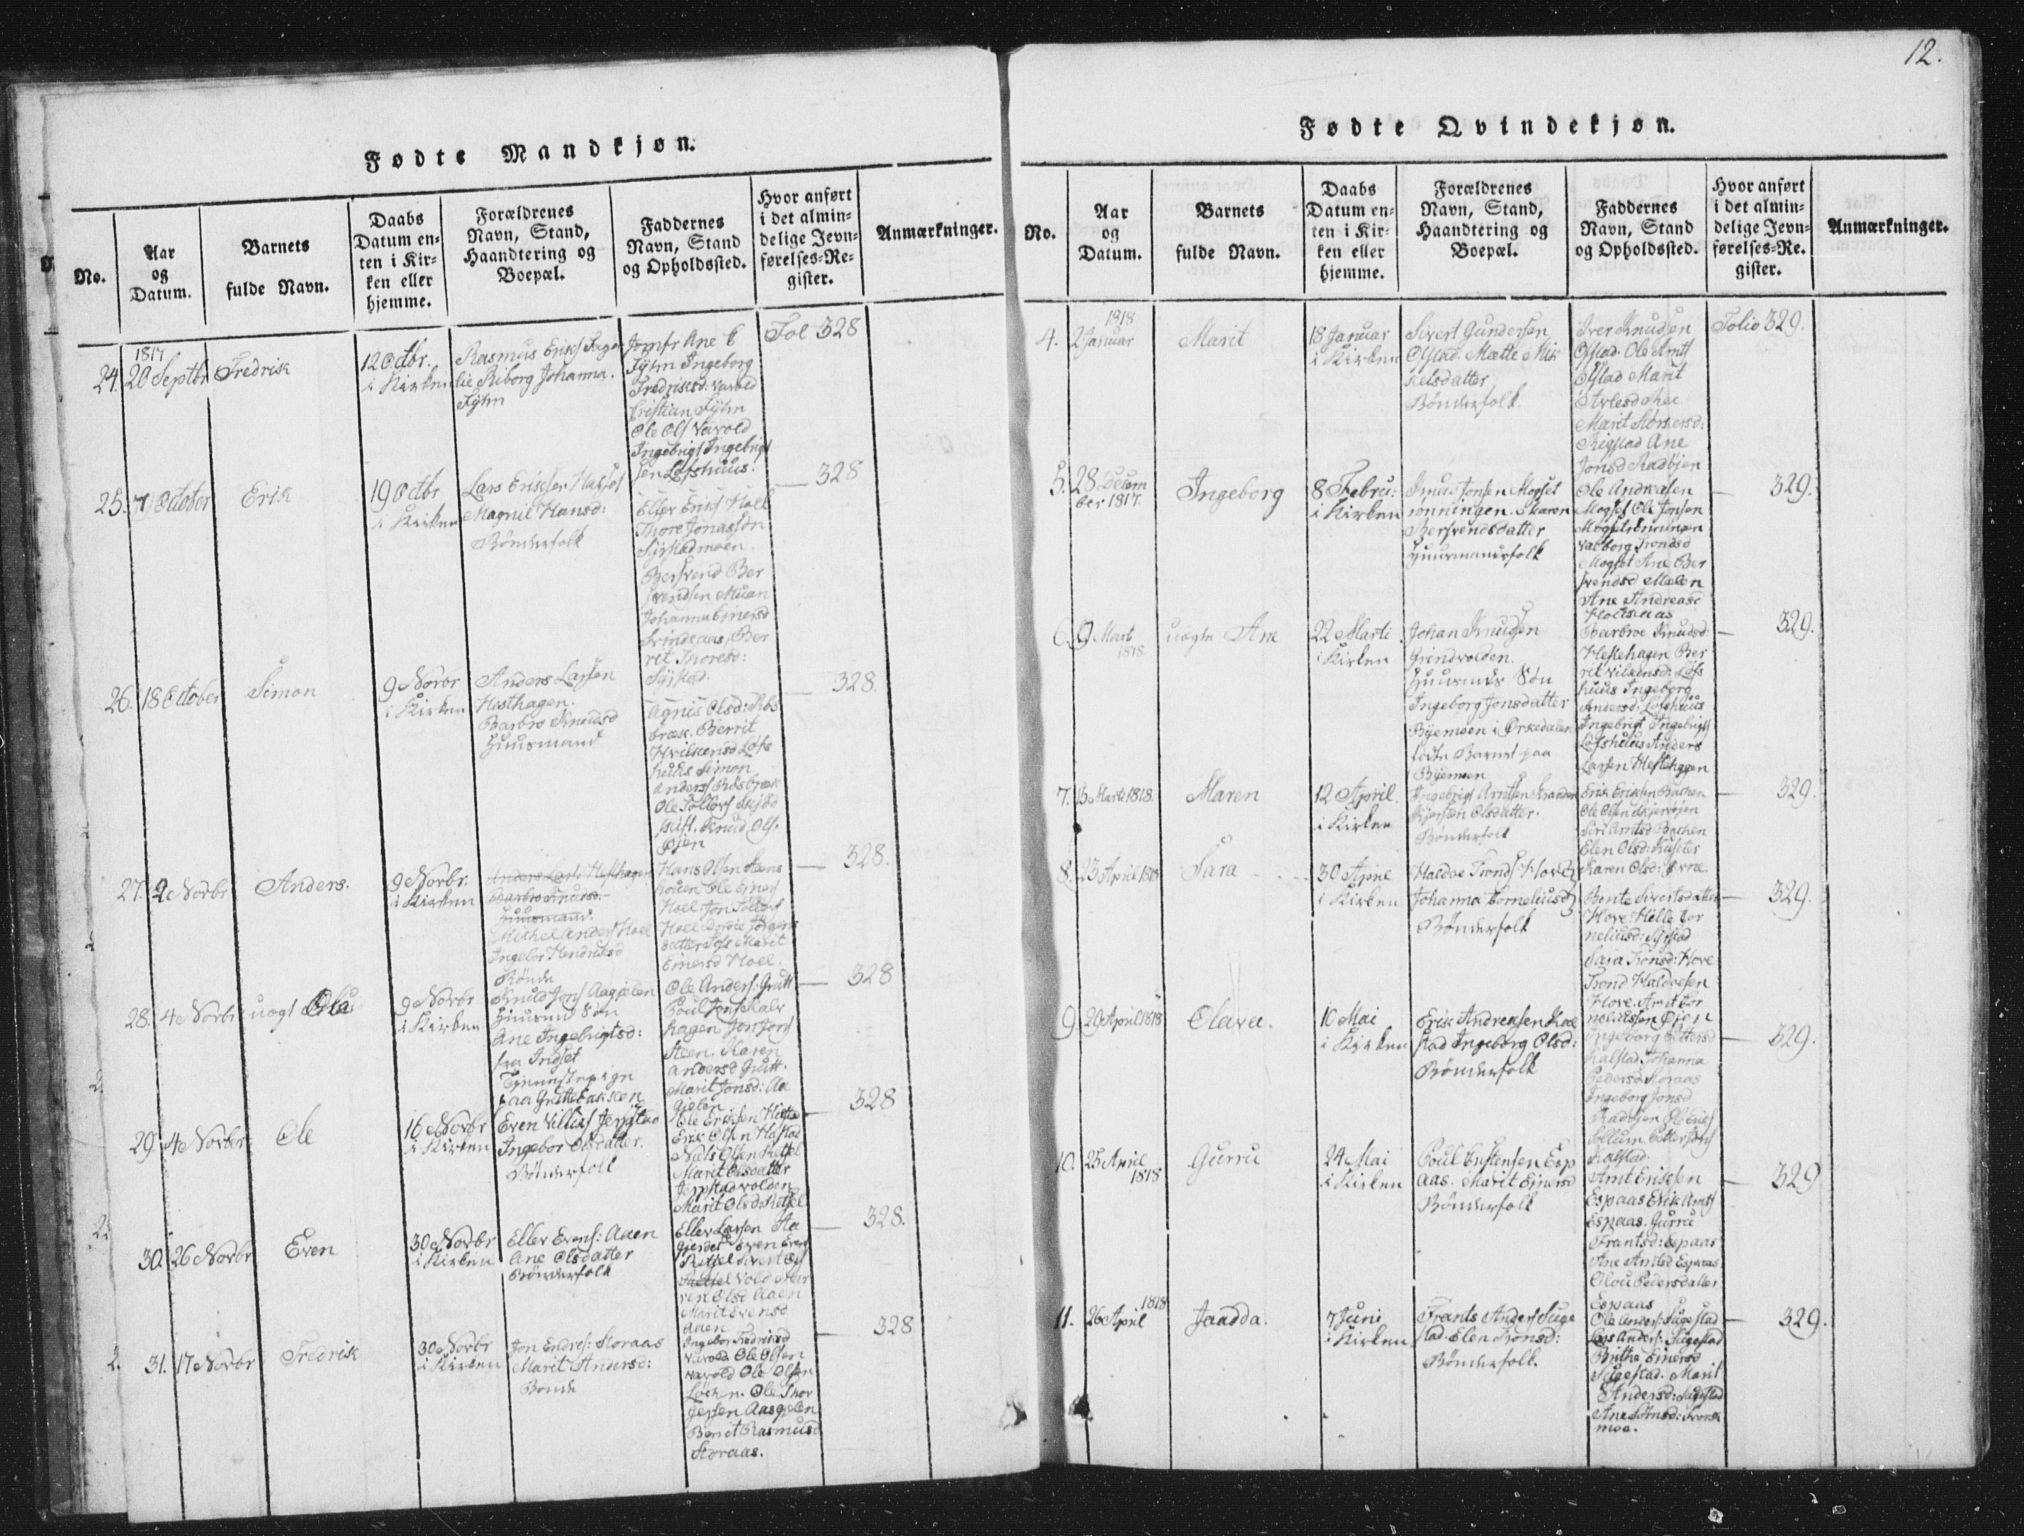 Fødte Mandkjøn.
No.
Aar
og
Datum.
Barnets
fulde Navn.
Daabs
Datum en-
ten i Kir-
ken eller
hjemme.
Forældrenes
Navn, Stand,
Haandtering og
Boepæl.
Faddernes
Navn, Stand
og Opholdssted.
Hvor anført
i det almin-
delige Jevn-
førelses-Re-
gister.
Anmærkninger.
24.
1817
20 Septbr
Fredrik
12 Octbr.
i Kirken
Rasmus Eriks
lie Riborg Johanna.
Fÿhn
Jomfr Ane C
Fÿhn Ingeborg
Fredriksd: Vavold
Cristian Fÿhn
Ole Ols Vavold
Ingebrigt Ingebrigt
sen Lofshuus.
Fol 328
25.
7 October
Erik
19 Octbr
i Kirken
Lars Eriksen
Magnil Hansd:
Bønderfolk
Eller Eriks Hall
Thore Jonassøn
Sÿrstadmoen
Bersvend Ber
svendsen Moan
Johanna Einersd
Svindsaas. Ber
rit Thoresd:
Sÿrstad.
328
26.
18 October
Simon
9 Novbr
i Kirken
Anders Larsen
Hesthagen.
Barbro Knudsd
Huusmand
Agnis Olsd: Ribs
bræk. Bierrit
Lofs
huus Simon
Anders Ribsbræk
Ole Tollevs
skift. Knud Ols.
Øjen
328.
27.
2 Novbr
Anders.
9 Novbr.
i Kirken
Anders Lars Hesthagen
Barbro Knudsd.
Huusmand.
Michel Anders Hoel
Ingebor Hendriksd
Bønde
Hans Olsen
Ole Einers
Hoel. Jon Tollevs
Hoel
datter Marit
Einersd Hoel.
328.
28.
4 Novbr
uægt Ola
9 Novbr
i Kirken
Knud Jons Aagjelen
Huusmd Søn
Ane Ingebrigtsd:
fra Indset
paa
Ole Anders: Grutt
Poul Jons Kalv
hagen Jon Jons
Steen. Karen
Andersd Grutt.
Marit Jonsd: Aa
gielen
328
29.
4 Novbr:
Ole
16 Novbr
i Kirken
Even Villiks Jerpstad
Ingebor Olsdatter.
Bønderfolk
Ole Eriksen
Erik Olsen Hafstad
Niels Olsen Kittel
Marit Olsdatter
Jerpstadvolden
Marit Olsd: Kittel
328
30.
26 Novbr
Even
30 Novbr
i Kirken
Eller Evens: Aaen
Ane Olsdatter
Bønderfolk
Eller Larsen Aa
gierdet Even Evens
Kittel Sivert Ols
Kittel Vold Ka
ren Olsd Aaen
Marit Evensd
Aaen
328.
31.
17 Novbr
Fredrik
30 Novbr
i Kirken
Jon Endres: Storaas
Marit Andersd:
Bonde
Ingebor Fredriksd
Vavold Ole Olsen
Vavold Ole Olsen
Løchn. Ole Thor
gersen Aasgielen
Berrit Rasmusd
Storaas.
328
12.
Fødte Qvindekjøn.
No.
Aar
og
Datum.
Barnets
fulde Navn.
Daabs
Datum en-
ten i Kir-
ken eller
hjemme.
Forældrenes
Navn, Stand,
Haandtering og
Boepæl.
Faddernes
Navn, Stand
og Opholdssted.
Hvor anført
i det almin-
delige Jevn-
førelses-Re-
gister.
Anmærkninger.
4.
1818
2 Januar
Marit
18 Januar
i Kirken
Sivert Gundersen
Olstad. Mætte Mik
kelsdatter
Bønderfolk.
Iver Knudsen
Olstad. Ole Arnts
Olstad Marit
Marit
Rigstad Ane
Jonsd Radbjen
Folio 329.
5.
28. Decem
ber 1817.
Ingeborg
8 Febru:
i Kirken
Knud Jonsen Mogset
rønningen. Maren
Bersvendsdatter
Huusmansfolk
Ole Andreasen
Mogset Ole Jonsen
Mogsetrønningen
Valborg Trondsd
Mogset Ane Ber
svendsd Mælen
Ane Andreasd
329.
6.
9 Marti
1818.
uægte Ane
22 Marti
i Kirken
Johan Knudsen
Grindvolden
Huusmds Søn
Ingeborg Jonsdatter
Byemoen i Ørkedalen
fødte Barnet paa
Byemoen
Barbroe Knudsd:
Hestehagen Ber
rit Vilkensd: Lofs
huus Ingeborg
Andersd: Lofshuus
Ingebrigt Ingebrigts
Lofshuus Anders
Larsen Hesthagen
329.
7.
13 Marti 1818.
Maren
12 April
i Kirken
Ingebrigt Arntsen
Olsdatter.
Bønderfolk
Erik Eriksen Bachen
Ole Olsen
Siri Arntsd Bachen
Elen Olsd:
Karen Olsd:
329.
8.
23 April 1818
Sara
30 Aprie
i Kirken
Haldoe Tronds Hove
Johanna Corneliusd
Bønderfolk
Bente Sivertsdatter
Hove Helle Cor
neliusd: Sÿrstad
Sara Tronsd: Hove
Trond Haldoesen
Hove. Arnt Cor
neliussen Øjen
329.
9.
20 April 1818
Olava.
10 Mai
i Kirken
Erik Andreasen Kal
stad Ingeborg Olsd:
Bønderfolk
Ingeborg Pettersd
Kalstad. Johanna
Pedersd Storaas
Ingeborg Jonsd
Radbjen Ole Eriks
Petter Jons
Kalstad.
329.
10.
25 April
1818
Gurru
24 Mai
i Kirken
Poul Eustensen Esp
aas. Marit Einersd
Bønderfolk
Arnt Eriksen
Espaas Erik Arnts
Espaas. Gurru
Frantsd: Espaas
Ane Arntsd Espaas
Olou Pedersdatter
Espaas
329
11.
1818
26 April
Jaadda.
7 Juni
i Kirken
Frants Anders Suge
stad. Elen Tronsd:
Bønderfolk.
Ole Anders: Sugestad
Lars Anders: Sugestad
Brithe Einersd
Sugestad. Marit
Andersd: Sugestad
Ane
moe.
329.